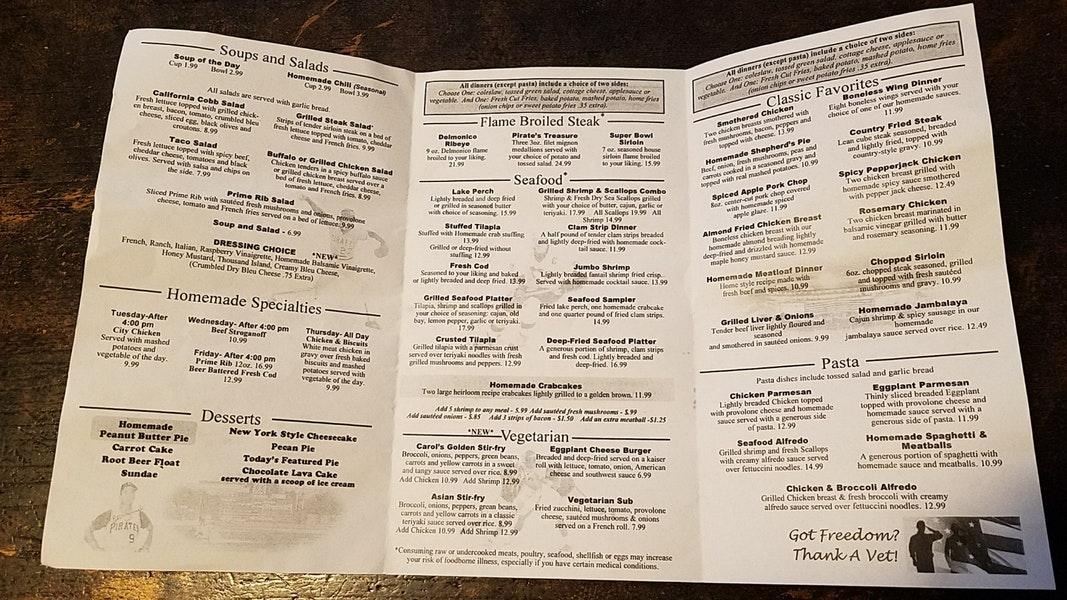 Soups and Salads
Soup of the Day
Cup 1.99 Bowl 2.99
Homemade Chili (Seasonal)
Cup 2.99 Bowl 3.99
All salads are served with garlic bread.
California Cobb Salad
Fresh lettuce topped with grilled chick-
en breast, bacon, tomato, crumbled bleu
cheese, sliced egg, black olives and
croutons. 8.99
Grilled Steak Salad*
Strips of tender sirloin steak on a bed of
fresh lettuce topped with tomato, cheddar
cheese and French fries. 9.99
Taco Salad
Fresh lettuce topped with spicy beef,
cheddar cheese, tomatoes and black
olives. Served with salsa and chips on
the side. 7.99
Buffalo or Grilled Chicken Salad
Chicken tenders in a spicy buffalo sauce
or grilled chicken breast served over a
bed of fresh lettuce, cheddar cheese,
tomato and French fries. 8.99
Prime Rib Salad
Sliced Prime Rib with sautéed fresh mushrooms and onions, provolone
cheese, tomato and French fries served on a bed of lettuce. 9.99
Soup and Salad - 6.99
DRESSING CHOICE *NEW*
French, Ranch, Italian, Raspberry Vinaigrette, Homemade Balsamic Vinaigrette,
Honey Mustard, Thousand Island, Creamy Bleu Cheese,
(Crumbled Dry Bleu Cheese .75 Extra)
Homemade Specialties
Tuesday-After
4:00 pm
City Chicken
Served with mashed
potatoes and
vegetable of the day.
9.99
Wednesday- After 4:00 pm
Beef Stroganoff
10.99
Friday- After 4:00 pm
Prime Rib 12oz. 16.99
Beer Battered Fresh Cod
12.99
Thursday- All Day
Chicken & Biscuits
White meat chicken in
gravy over fresh baked
biscuits and mashed
potatoes served with
vegetable of the day.
9.99
Desserts
Homemade
Peanut Butter Pie
Carrot Cake
Root Beer Float
Sundae
New York Style Cheesecake
Pecan Pie
Today's Featured Pie
Chocolate Lava Cake
served with a scoop of ice cream
PIRATES
9
All dinners (except pasta) include a choice of two sides:
Choose One: coleslaw, tossed green salad, cottage cheese, applesauce or
vegetable. And One: Fresh Cut Fries, baked potato, mashed potato, home fries
(onion chips or sweet potato fries .35 extra).
Flame Broiled Steak*
Delmonico
Ribeye
9 oz. Delmonico flame
broiled to your liking.
21.99
Pirate's Treasure
Three 3oz. filet mignon
medallions served with
your choice of potato and
tossed salad. 24.99
Super Bowl
Sirloin
7 oz. seasoned house
sirloin flame broiled
to your liking. 15.99
Seafood*
Lake Perch
Lightly breaded and deep fried
or grilled in seasoned butter
with choice of seasoning. 15.99
Grilled Shrimp & Scallops Combo
Shrimp & Fresh Dry Sea Scallops grilled
with your choice of butter, cajun, garlic or
teriyaki. 17.99 All Scallops 19.99 All
Shrimp 14.99
Stuffed Tilapia
Stuffed with Homemade crab stuffing
13.99
Grilled or deep-fried without
stuffing 12.99
Clam Strip Dinner
A half pound of tender clam strips breaded
and lightly deep-fried with homemade cock-
tail sauce. 11.99
Fresh Cod
Seasoned to your liking and baked
or lightly breaded and deep fried. 13.99
Jumbo Shrimp
Lightly breaded fantail shrimp fried crisp.
Served with homemade cocktail sauce. 13.99
Grilled Seafood Platter
Tilapia, shrimp and scallops grilled in
your choice of seasoning: cajun, old
bay, lemon pepper, garlic or teriyaki.
17.99
Seafood Sampler
Fried lake perch, one homemade crabcake
and one quarter pound of fried clam strips.
14.99
Crusted Tilapia
Grilled tilapia with a parmesan crust
served over teriyaki noodles with fresh
grilled mushrooms and peppers. 12.99
Deep-Fried Seafood Platter
A generous portion of shrimp, clam strips
and fresh cod. Lightly breaded and
deep-fried. 16.99
Homemade Crabcakes
Two large heirloom recipe crabcakes lightly grilled to a golden brown. 11.99
Add 5 shrimp to any meal - $.99 Add sautéed fresh mushrooms - $.99
Add sautéed onions - $.85 Add 3 strips of bacon - $1.50 Add an extra meatball -$1.25
*NEW* Vegetarian
Carol's Golden Stir-fry
Broccoli, onions, peppers, green beans,
carrots and yellow carrots in a sweet
and tangy sauce served over rice. 8.99
Add Chicken 10.99 Add Shrimp 12.99
Eggplant Cheese Burger
Breaded and deep-fried served on a kaiser
roll with lettuce, tomato, onion, American
cheese and southwest sauce 6.99
Asian Stir-fry
Broccoli, onions, peppers, green beans,
carrots and yellow carrots in a classic
teriyaki sauce served over rice. 8.99
Add Chicken 10.99 Add Shrimp 12.99
Vegetarian Sub
Fried zucchini, lettuce, tomato, provolone
cheese, sautéed mushrooms & onions
served on a French roll. 7.99
*Consuming raw or undercooked meats, poultry, seafood, shellfish or eggs may increase
your risk of foodborne illness, especially if you have certain medical conditions.
All dinners (except pasta) include a choice of two sides:
Choose One: coleslaw, tossed green salad, cottage cheese, applesauce or
vegetable. And One: Fresh Cut Fries, baked potato, mashed potato, home fries
(onion chips or sweet potato fries .35 extra).
Classic Favorites
Smothered Chicken
Two chicken breasts smothered with
fresh mushrooms, bacon, peppers and
topped with cheese. 13.99
Boneless Wing Dinner
Eight boneless wings served with your
choice of one of our homemade sauces.
11.99
Homemade Shepherd's Pie
Beef, onion, fresh mushrooms, peas and
carrots cooked in a seasoned gravy and
topped with real mashed potatoes. 10.99
Country Fried Steak
Lean cube steak seasoned, breaded
and lightly fried, topped with
country-style gravy. 10.99
Spiced Apple Pork Chop
8oz. center-cut pork chop covered
with homemade spiced
apple glaze. 11.99
Spicy Pepperjack Chicken
Two chicken breast grilled with
homemade spicy sauce smothered
with pepper jack cheese. 12.49
Almond Fried Chicken Breast
Boneless chicken breast with our
homemade almond breading lightly
deep-fried and drizzled with homemade
maple honey mustard sauce. 12.99
Rosemary Chicken
Two chicken breast marinated in
balsamic vinegar grilled with butter
and rosemary seasoning. 11.99
Homemade Meatloaf Dinner
Home style recipe made with
fresh beef and spices. 10.99
Chopped Sirloin
6oz. chopped steak seasoned, grilled
and topped with fresh sautéed
mushrooms and gravy. 10.99
Grilled Liver & Onions
Tender beef liver lightly floured and
seasoned
and smothered in sautéed onions. 9.99
Homemade Jambalaya
Cajun shrimp & spicy sausage in our
homemade
jambalaya sauce served over rice. 12.49
Pasta
Pasta dishes include tossed salad and garlic bread
Chicken Parmesan
Lightly breaded Chicken topped
with provolone cheese and homemade
sauce served with a generous side
of pasta. 12.99
Eggplant Parmesan
Thinly sliced breaded Eggplant
topped with provolone cheese and
homemade sauce served with a
generous side of pasta. 11.99
Seafood Alfredo
Grilled shrimp and fresh Scallops
with creamy alfredo sauce served
over fettuccini noodles. 14.99
Homemade Spaghetti &
Meatballs
A generous portion of spaghetti with
homemade sauce and meatballs. 10.99
Chicken & Broccoli Alfredo
Grilled Chicken breast & fresh broccoli with creamy
alfredo sauce served over fettuccini noodles. 12.99
Got Freedom?
Thank A Vet!